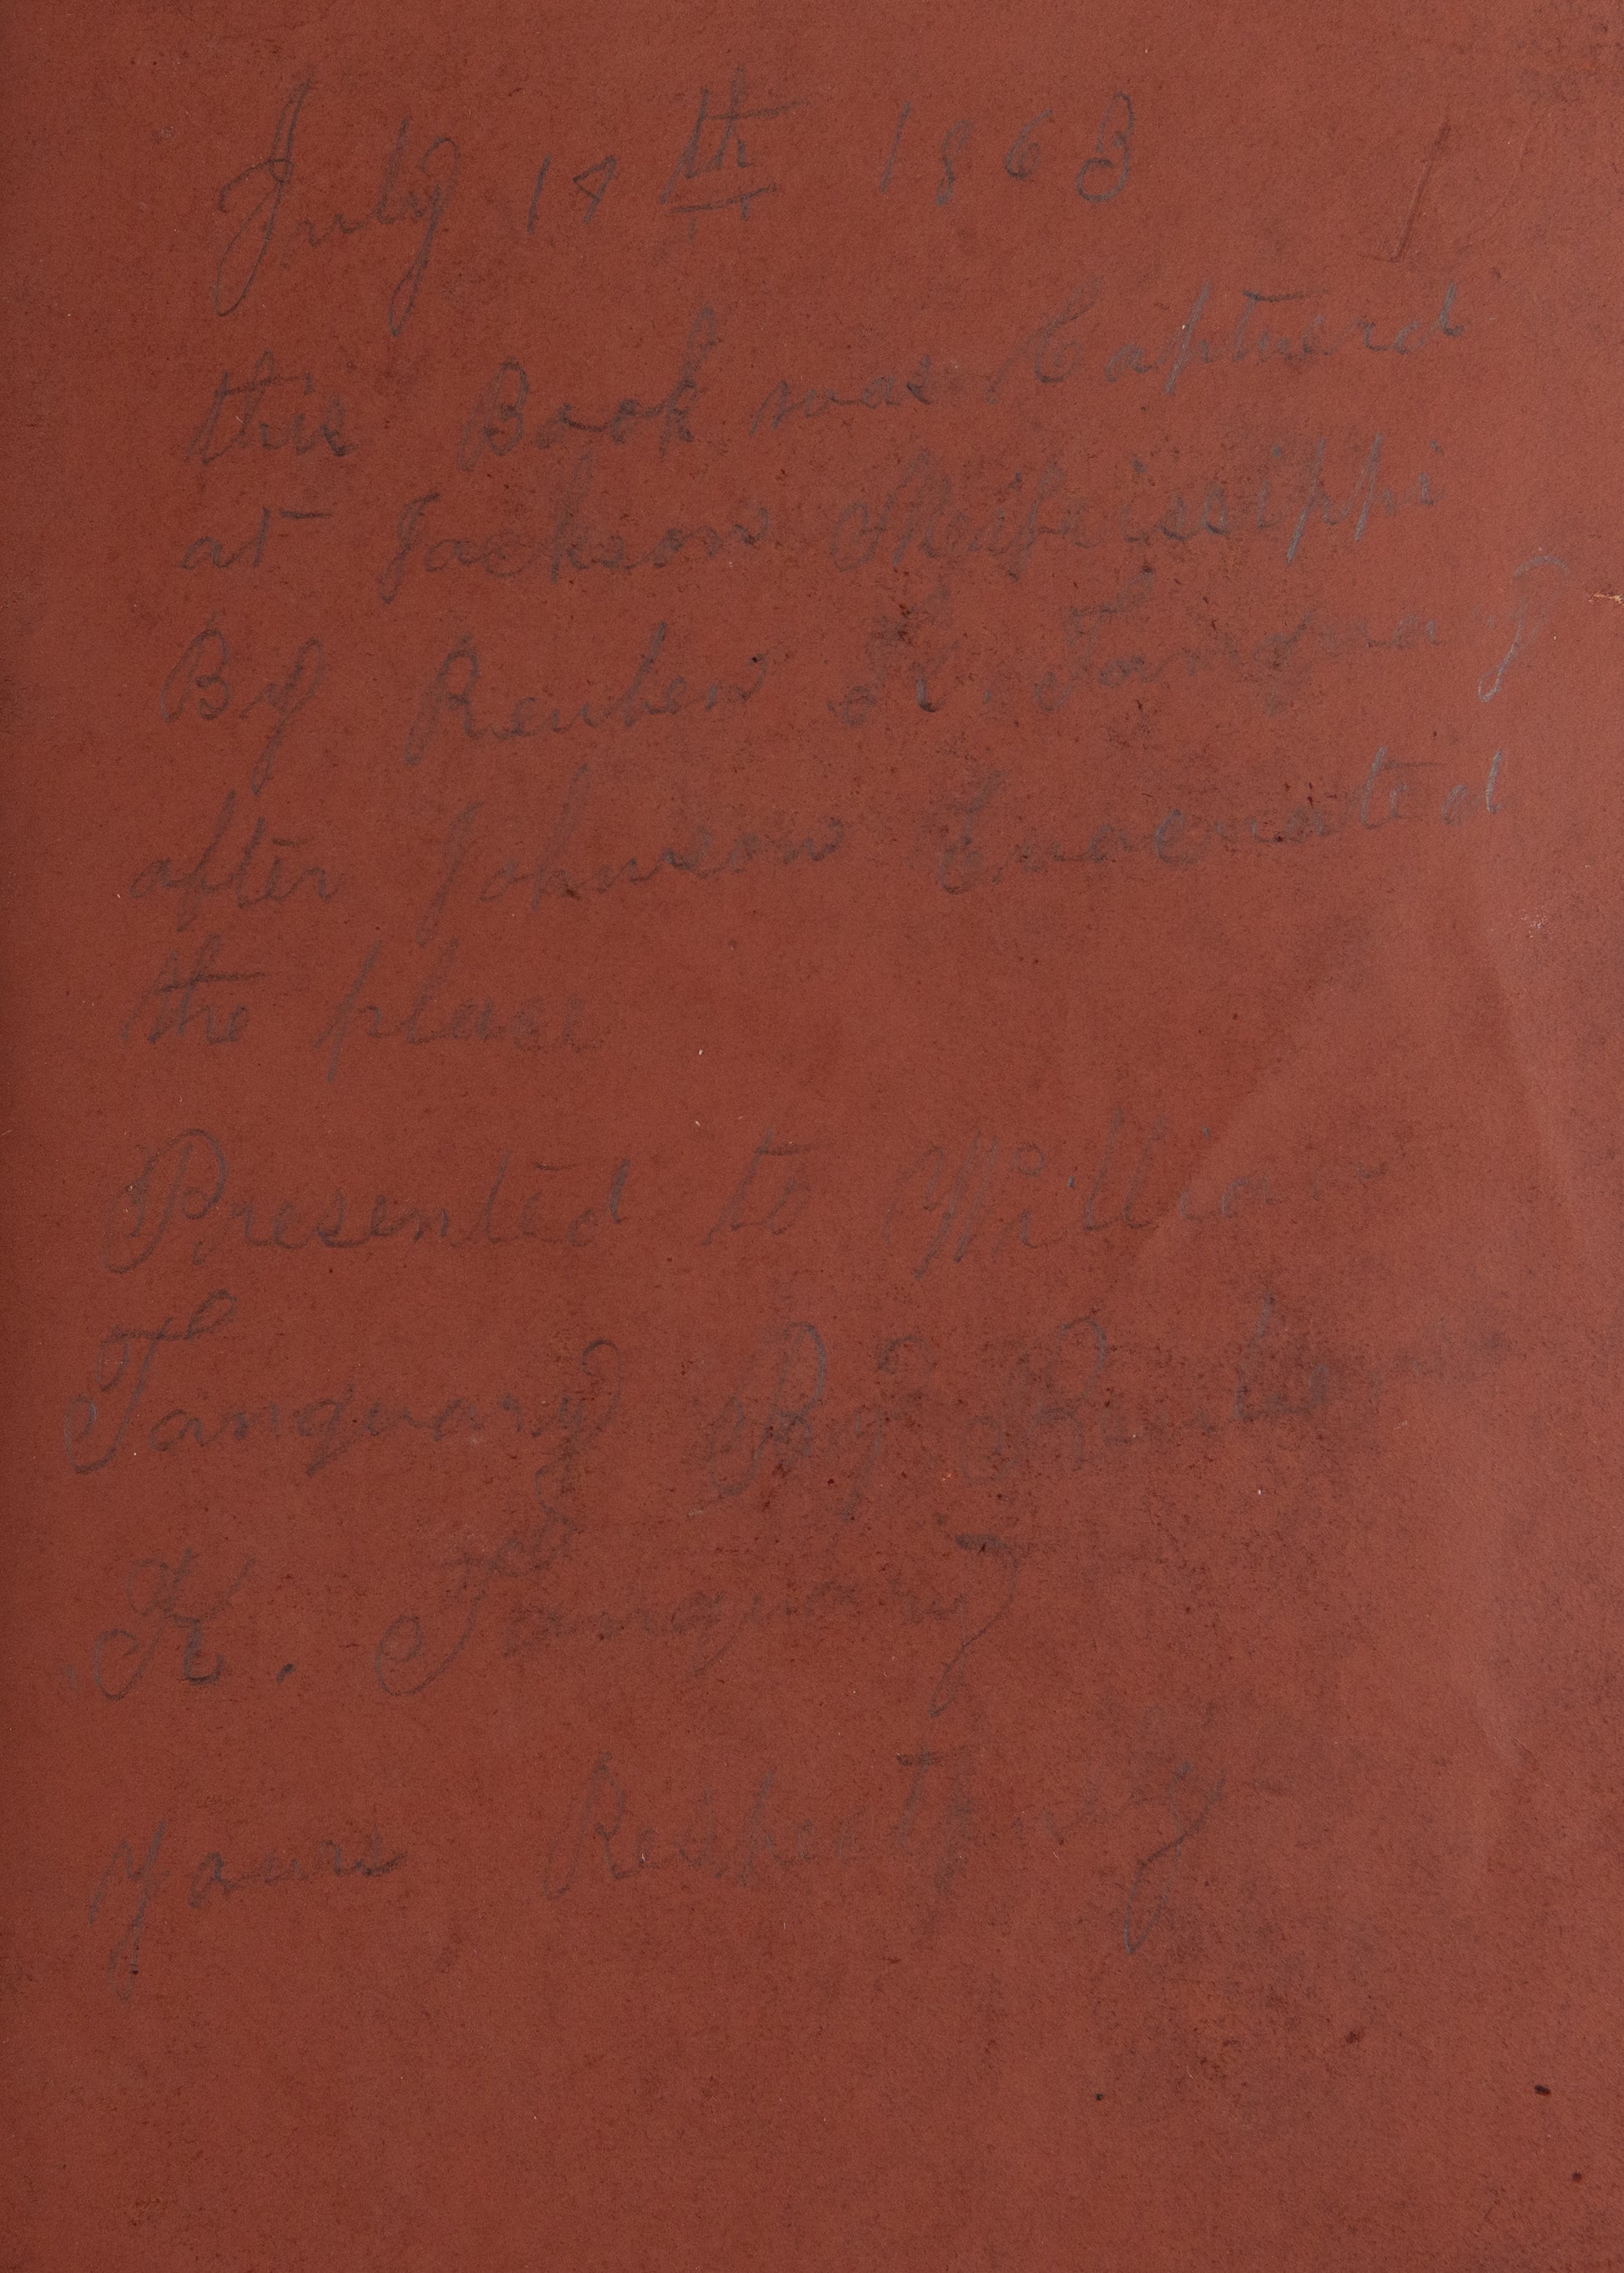 July 18th 1863
this Book was Captuerd
at Jackson Mississippi
By Reuben K. Tanquary
after Johnson Evacuated
the place
Presented to William
Tanquary By Reuben
K. Tanquary
Yours Respectfuly